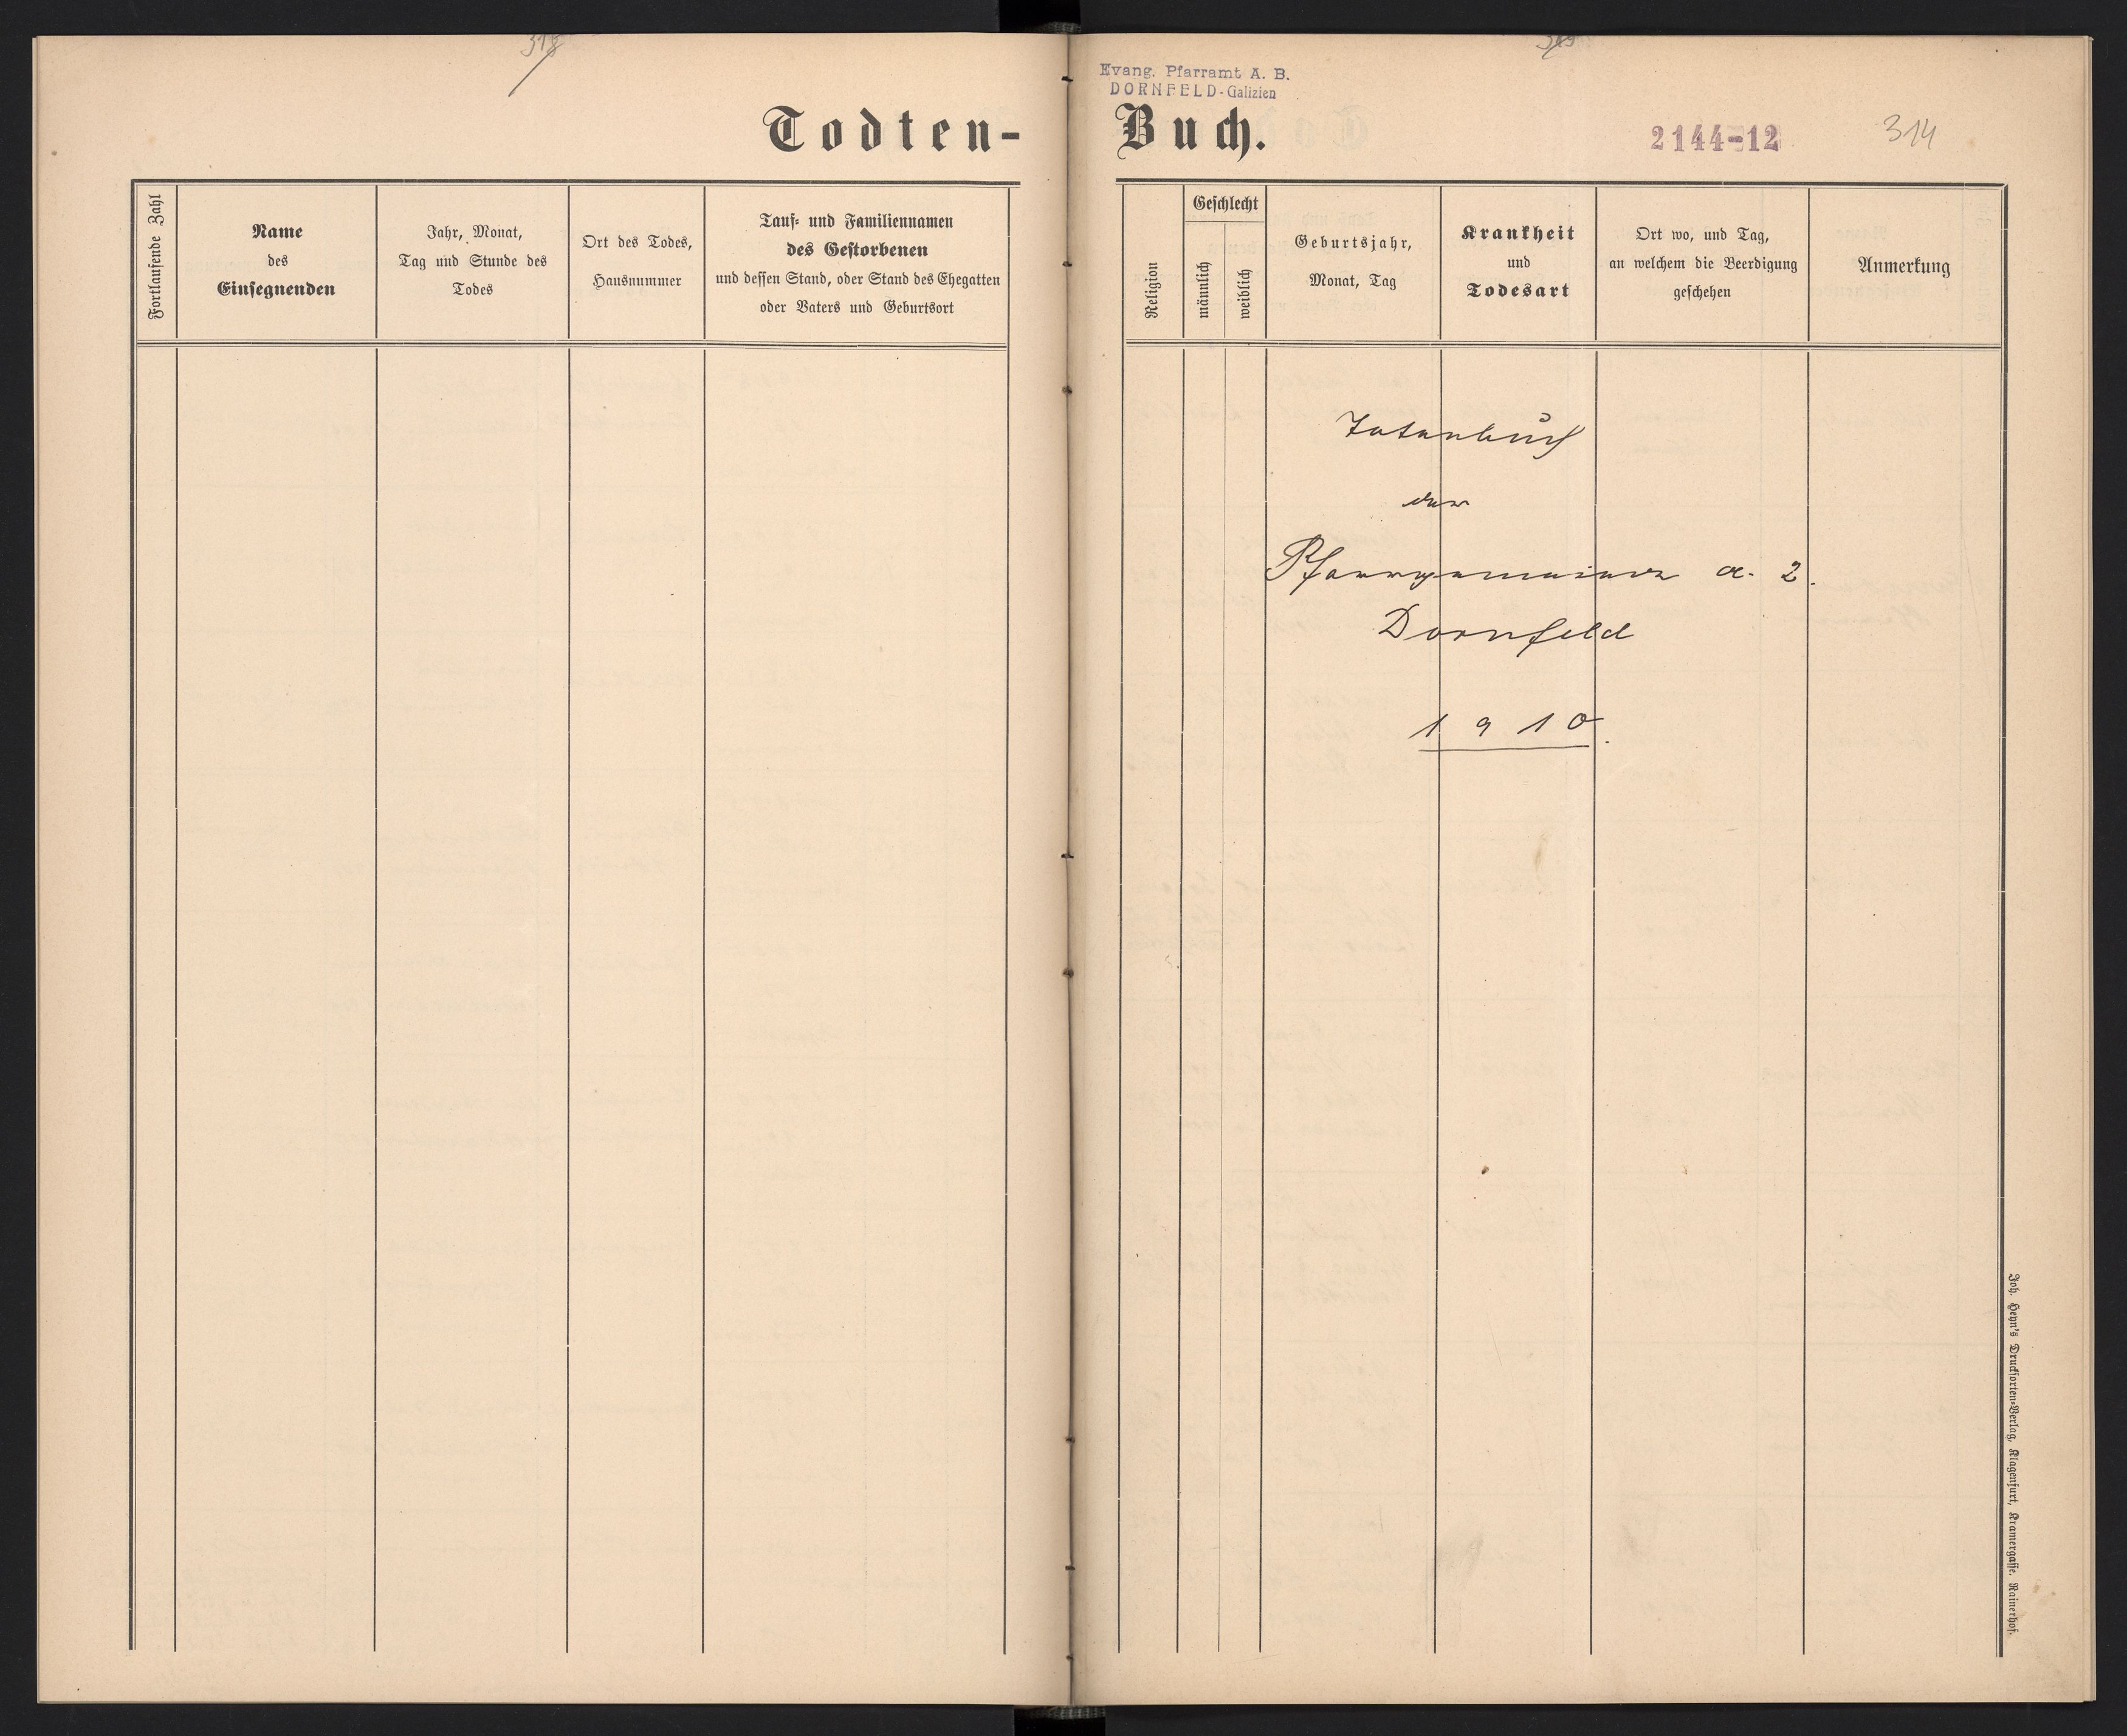 Todten-
Fortlaufende Zahl
Name
des
Einsegnenden
Jahr, Monat,
Tag und Stunde des
Todes
Ort des Todes,
Hausnummer
Tauf- und Familiennamen
des Gestorbenen
und dessen Stand, oder Stand des Ehegatten
oder Vaters und Geburtsort
Evang. Pfarramt A. B.
DORNFELD-Galizien
Buch.
2144-12
314
Religion
Geschlecht
männlich
weiblich
Geburtsjahr,
Monat, Tag
Krankheit
und
Todesart
Ort wo, und Tag,
an welchem die Beerdigung
geschehen
Anmerkung
Totenbuch
der
Pfarrgemeinde
Dornfeld
1910.
Joh. Heyn's Drucksorten-Verlag, Klagenfurt, Kramergasse. Rainerhof.